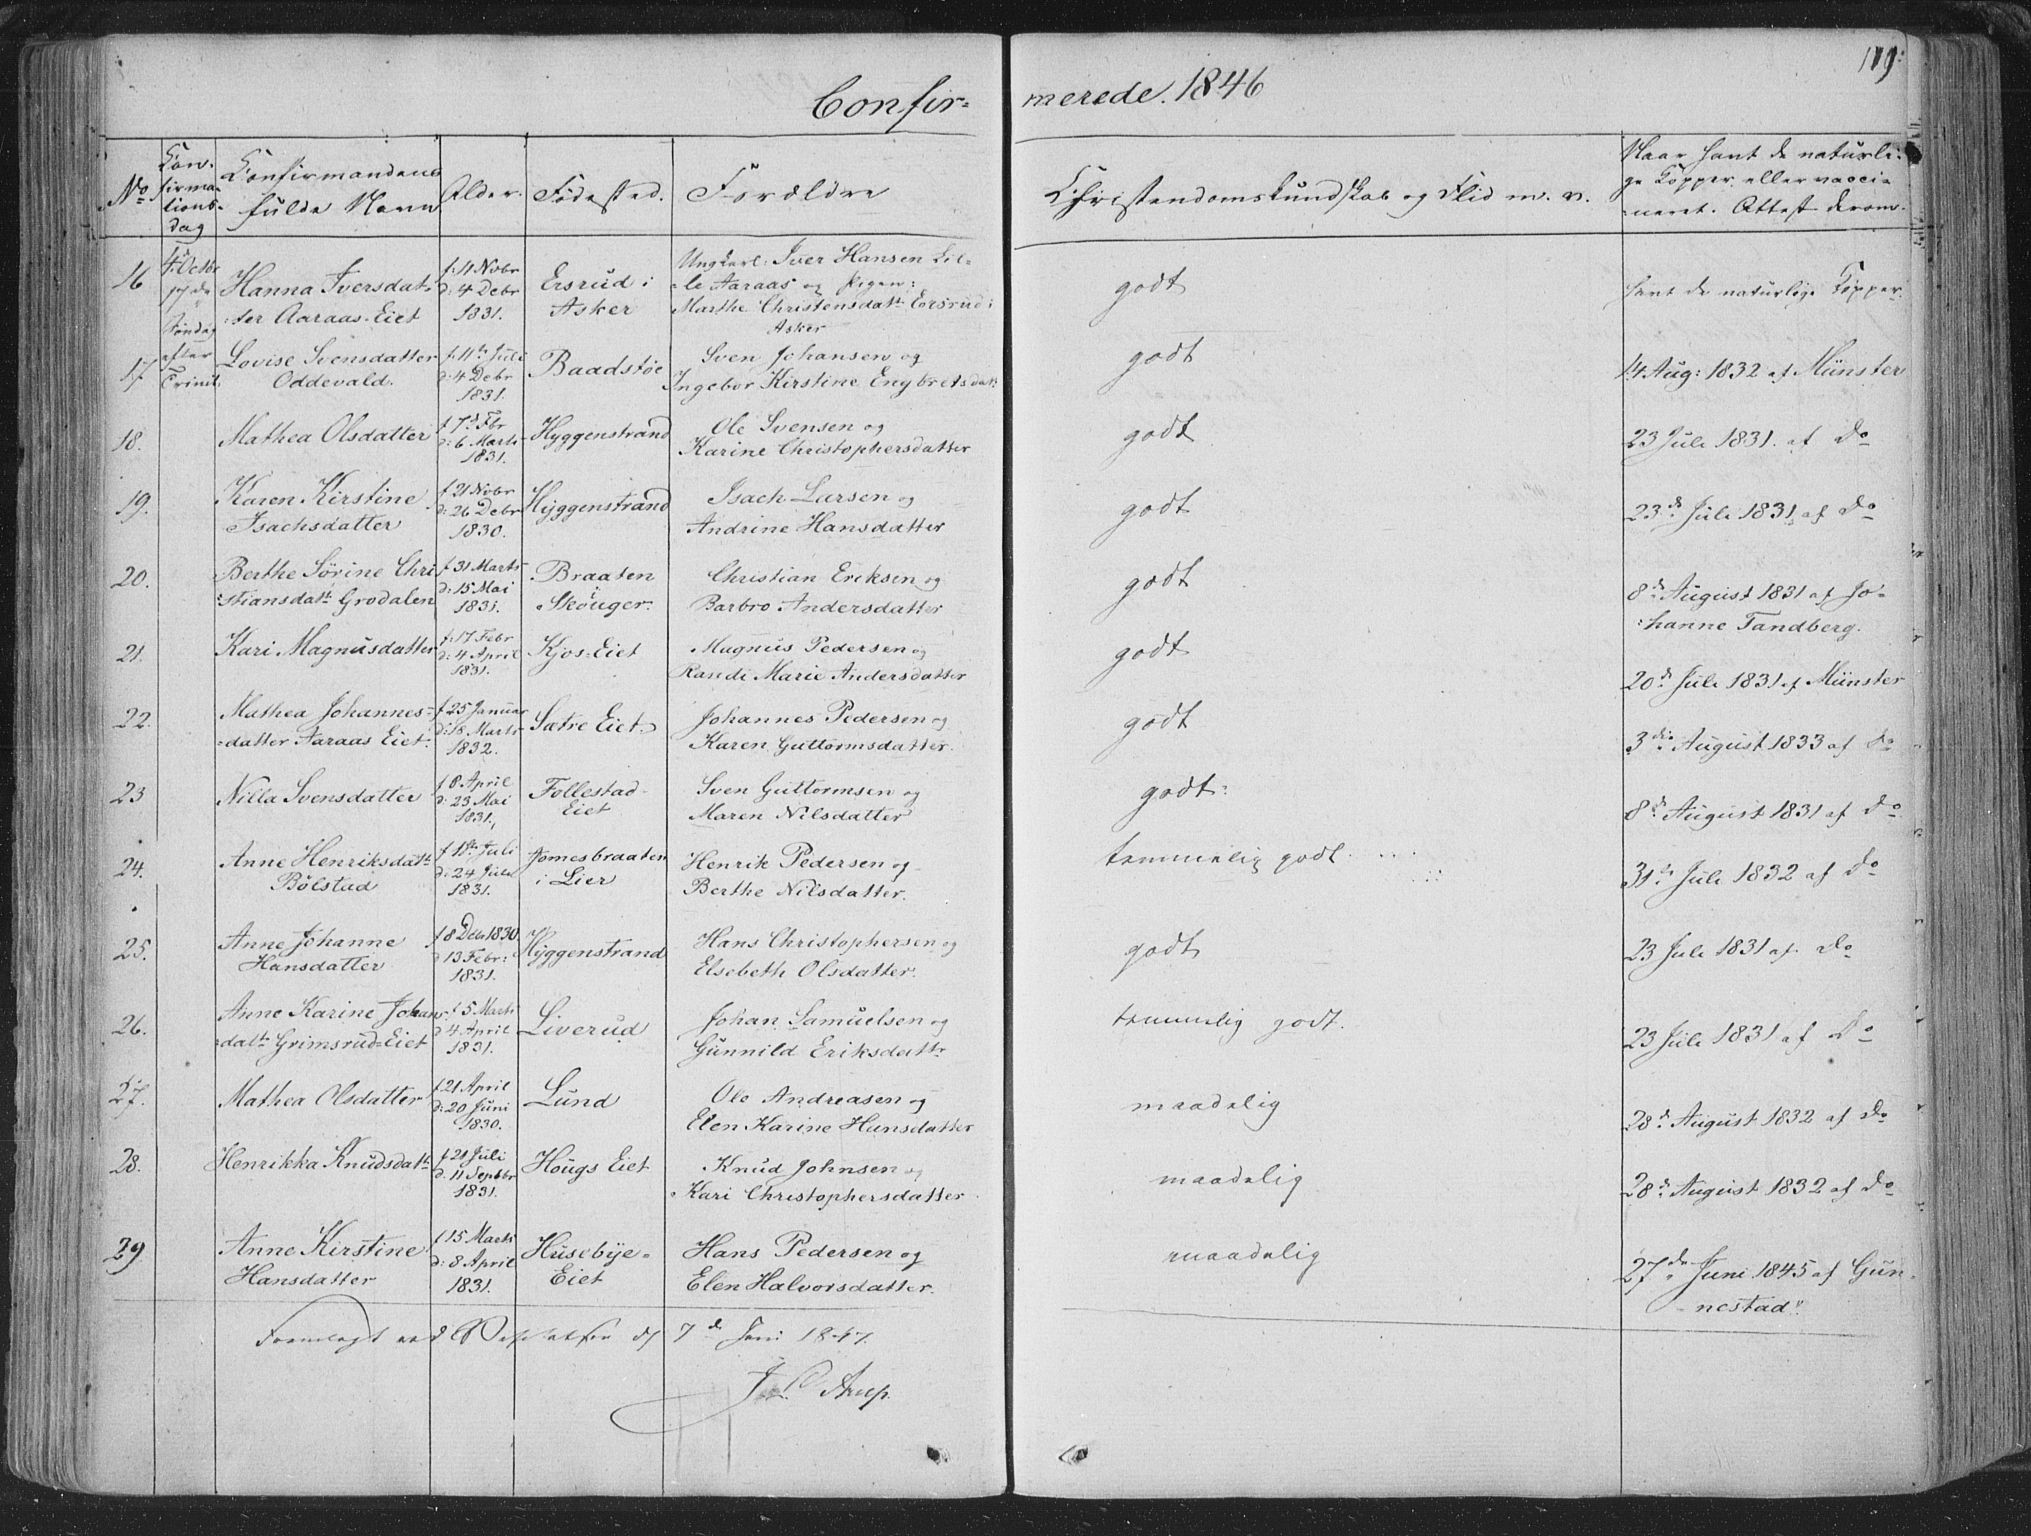 Confir=
merede. 1846
119.
No
Con-
firma-
tions-
dag
Confirmandens
fulde Navn
Alder.
Fødested.
Forældre
Christendomskundskab og Flid m. v.
Naar havt de naturli=
ge Kopper, eller vacci=
neret. Attest derom.
16
4. Octbr
17de
Søndag
efter
Trinit.
Hanna Iversdat-
ter Aaraas-Eiet
f: 11 Novbr
d: 4 Debr
1831.
Ersrud i
Asker
Ungkarl: Iver Hansen Lil-
le Aaraas og Pigen:
Marthe Christensdatt. Eersrud i
Asker
godt
havt de naturlige Kopper.
17.
Lovise Svensdatter
Oddevald.
f: 11te Juli
d: 4 Debr
1831.
Baadstøe
Sven Johansen og
Ingebor Kirstine Engbretsdatt
godt
14 Aug: 1832 af Münster
18.
Mathea Olsdatter
f 7d Fbr
d: 6 Marts
1831.
Hyggenstrand
Ole Svensen og
Karine Christophersdatter
godt
23 Juli 1831. af Do
19.
Karen Kirstine
Isachsdatter
f 21 Novbr
d: 26 Debr
1830.
Hyggenstrand
Isach Larsen og
Andrine Hansdatter
godt
23d Juli 1831, af Do
20.
Berthe Sørine Chri
stiansdatt. Grodalen
f 31 Marts
d: 15 Mai
1831.
Braaten
Skouger.
Christian Eriksen og
Barbro Andersdatter
godt
8d August 1831 af Jo=
hanne Tandberg.
21.
Kari Magnusdatter
f: 17 Febr
d: 4 April
1831.
Kjos-Eiet
Magnus Pedersen og
Randi Marie Andersdatter
godt
20d Juli 1831 af Münster
22.
Mathea Johannes=
=datter Aaraas Eiet.
f 25 Januar
d: 18 Marts
1832.
Sætre Eiet.
Johannes Pedersen og
Karen Guttormsdatter.
godt
3die August 1833 af Do
23
Nilla Svensdatter
f 8 April
d: 23 Mai
1831.
Follestad-
Eiet
Sven Guttormsen og
Maren Nilsdatter
godt.
8d August 1831 af Do
24.
Anne Henriksdatt.
Bølstad
f 1ste Juli
d: 24 Juli
1831.
Tomesbraaten
i Lier
Henrik Pedersen og
Berthe Nilsdatter.
temmelig godt.
31te Juli 1832 af Do
25.
Anne Johanne
Hansdatter
f 8 Debr 1830.
d 13 Febr:
1831.
Hyggenstrand
Hans Christophersen og
Elsebeth Olsdatter.
godt
23 Juli 1831 af. Do
26.
Anne Karine Johans
datt. Grimsrud-Eiet
f 5 Marts
d 4 April
1831.
Liverud
Johan Samuelsen og
Gunnild Eriksdattr
temmelig godt.
23 Juli 1831 af Do
27.
Mathea Olsdatter
f 21 April
d: 20 Juni
1830.
Lund
Ole Andreasen og
Elen Karine Hansdatter
maadelig
28d August 1832 af Do
28.
Henrikka Knudsdatt.
f 21 Juli
d: 11 Septbr
1831.
Hougs Eiet
Knud Johnsen og
Kari Christophersdatter
maadelig
28d August 1832 af Do
29.
Anne Kirstine
Hansdatter
f 15 Marts
d: 8 April
1831.
Husebye-
Eiet
Hans Pedersen og
Elen Halvorsdatter.
maadelig
27de Juni 1845 af Gun-
nestad"
Foreelagt ved d 7d Juni 1847.
Arup.